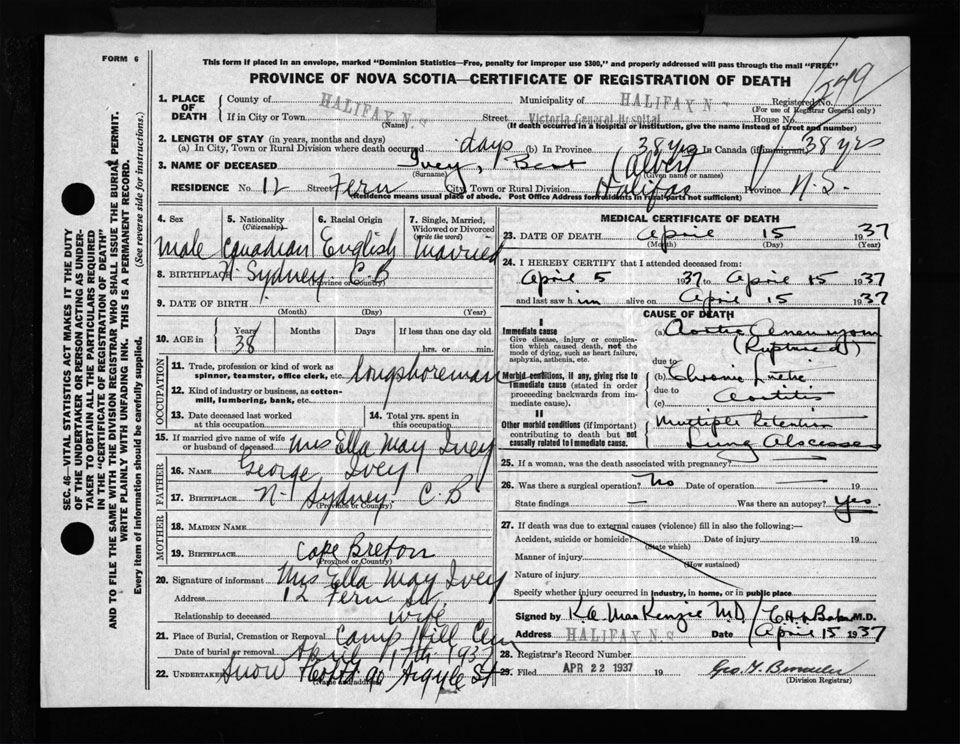 FORM 6
This form if placed in an envelope, marked "Dominion Statistics—Free, penalty for improper use $300," and properly addressed will pass through the mail "FREE"
PROVINCE OF NOVA SCOTIA—CERTIFICATE OF REGISTRATION OF DEATH
1. PLACE OF DEATH
County of HALIFAX N.S Municipality of HALIFAX N.S Registered No.
(For use of Registrar General only)
If in City or Town (Name) Street Victoria General Hospital House No.
(If death occurred in a hospital or institution, give the name instead of street and number)
2. LENGTH OF STAY (in years, months and days)
(a) In City, Town or Rural Division where death occurred days (b) In Province 38 yrs (c) In Canada (if immigrant) 38 yrs
3. NAME OF DECEASED Ivey, Bert (Albert)
(Surname) (Given name or names)
RESIDENCE No. 12 Street Fern City, Town or Rural Division Halifax Province N.S.
(Residence means usual place of abode. Post Office Address for residents in rural parts not sufficient)
4. Sex 5. Nationality (Citizenship) 6. Racial Origin 7. Single, Married, Widowed or Divorced (write the word)
male Canadian English Married
8. BIRTHPLACE N. Sydney. C.B
(Province or Country)
9. DATE OF BIRTH
(Month) (Day) (Year)
10. AGE in Years Months Days If less than one day old
38 hrs. or min.
OCCUPATION
11. Trade, profession or kind of work as spinner, teamster, office clerk, etc. longshoreman
12. Kind of industry or business, as cotton-mill, lumbering, bank, etc.
13. Date deceased last worked at this occupation 14. Total yrs. spent in this occupation
15. If married give name of wife or husband of deceased Mrs Ella May Ivey
FATHER
16. NAME George Ivey
17. BIRTHPLACE N. Sydney. C B
(Province or Country)
MOTHER
18. MAIDEN NAME
19. BIRTHPLACE Cape Breton
(Province or Country)
20. Signature of informant Mrs Ella May Ivey
Address 12 Fern St.
Relationship to deceased wife
21. Place of Burial, Cremation or Removal Camp Hill Cem
Date of burial or removal April 17th 1937
22. UNDERTAKER Snow 90 Argyle St
(Name and address)
MEDICAL CERTIFICATE OF DEATH
23. DATE OF DEATH April 15 1937
(Month) (Day) (Year)
24. I HEREBY CERTIFY that I attended deceased from
April 5 1937 to April 15 1937
and last saw him alive on April 15 1937
CAUSE OF DEATH
I
Immediate cause
Give disease, injury or complication which caused death, not the mode of dying, such as heart failure, asphyxia, asthenia, etc.
(a) Aortic Aneurysm
(Ruptured)
Morbid conditions, if any, giving rise to immediate cause (stated in order proceeding backwards from immediate cause).
due to
(b) Chronic Luetic
due to
(c) Aortitis
II
Other morbid conditions (if important) contributing to death but not causally related to immediate cause.
Multiple Retention
Lung Abscesses
25. If a woman, was the death associated with pregnancy?
26. Was there a surgical operation? No Date of operation — 19
State findings — Was there an autopsy? Yes
27. If death was due to external causes (violence) fill in also the following:—
Accident, suicide or homicide? Date of injury 19
(State which)
Manner of injury
(How sustained)
Nature of injury
Specify whether injury occurred in industry, in home, or in public place
Signed by K.A. MacKenzie M.D. / M.D.
Address HALIFAX N.S Date April 15 1937
28. Registrar's Record Number
29. Filed APR 22 1937 19
(Division Registrar)
SEC. 46—VITAL STATISTICS ACT MAKES IT THE DUTY
OF THE UNDERTAKER OR PERSON ACTING AS UNDER-
TAKER TO OBTAIN ALL THE PARTICULARS REQUIRED
IN THE "CERTIFICATE OF REGISTRATION OF DEATH"
AND TO FILE THE SAME WITH THE DIVISION REGISTRAR WHO SHALL ISSUE THE BURIAL PERMIT.
WRITE PLAINLY WITH UNFADING INK. THIS IS A PERMANENT RECORD.
Every item of information should be carefully supplied. (See reverse side for instructions.)